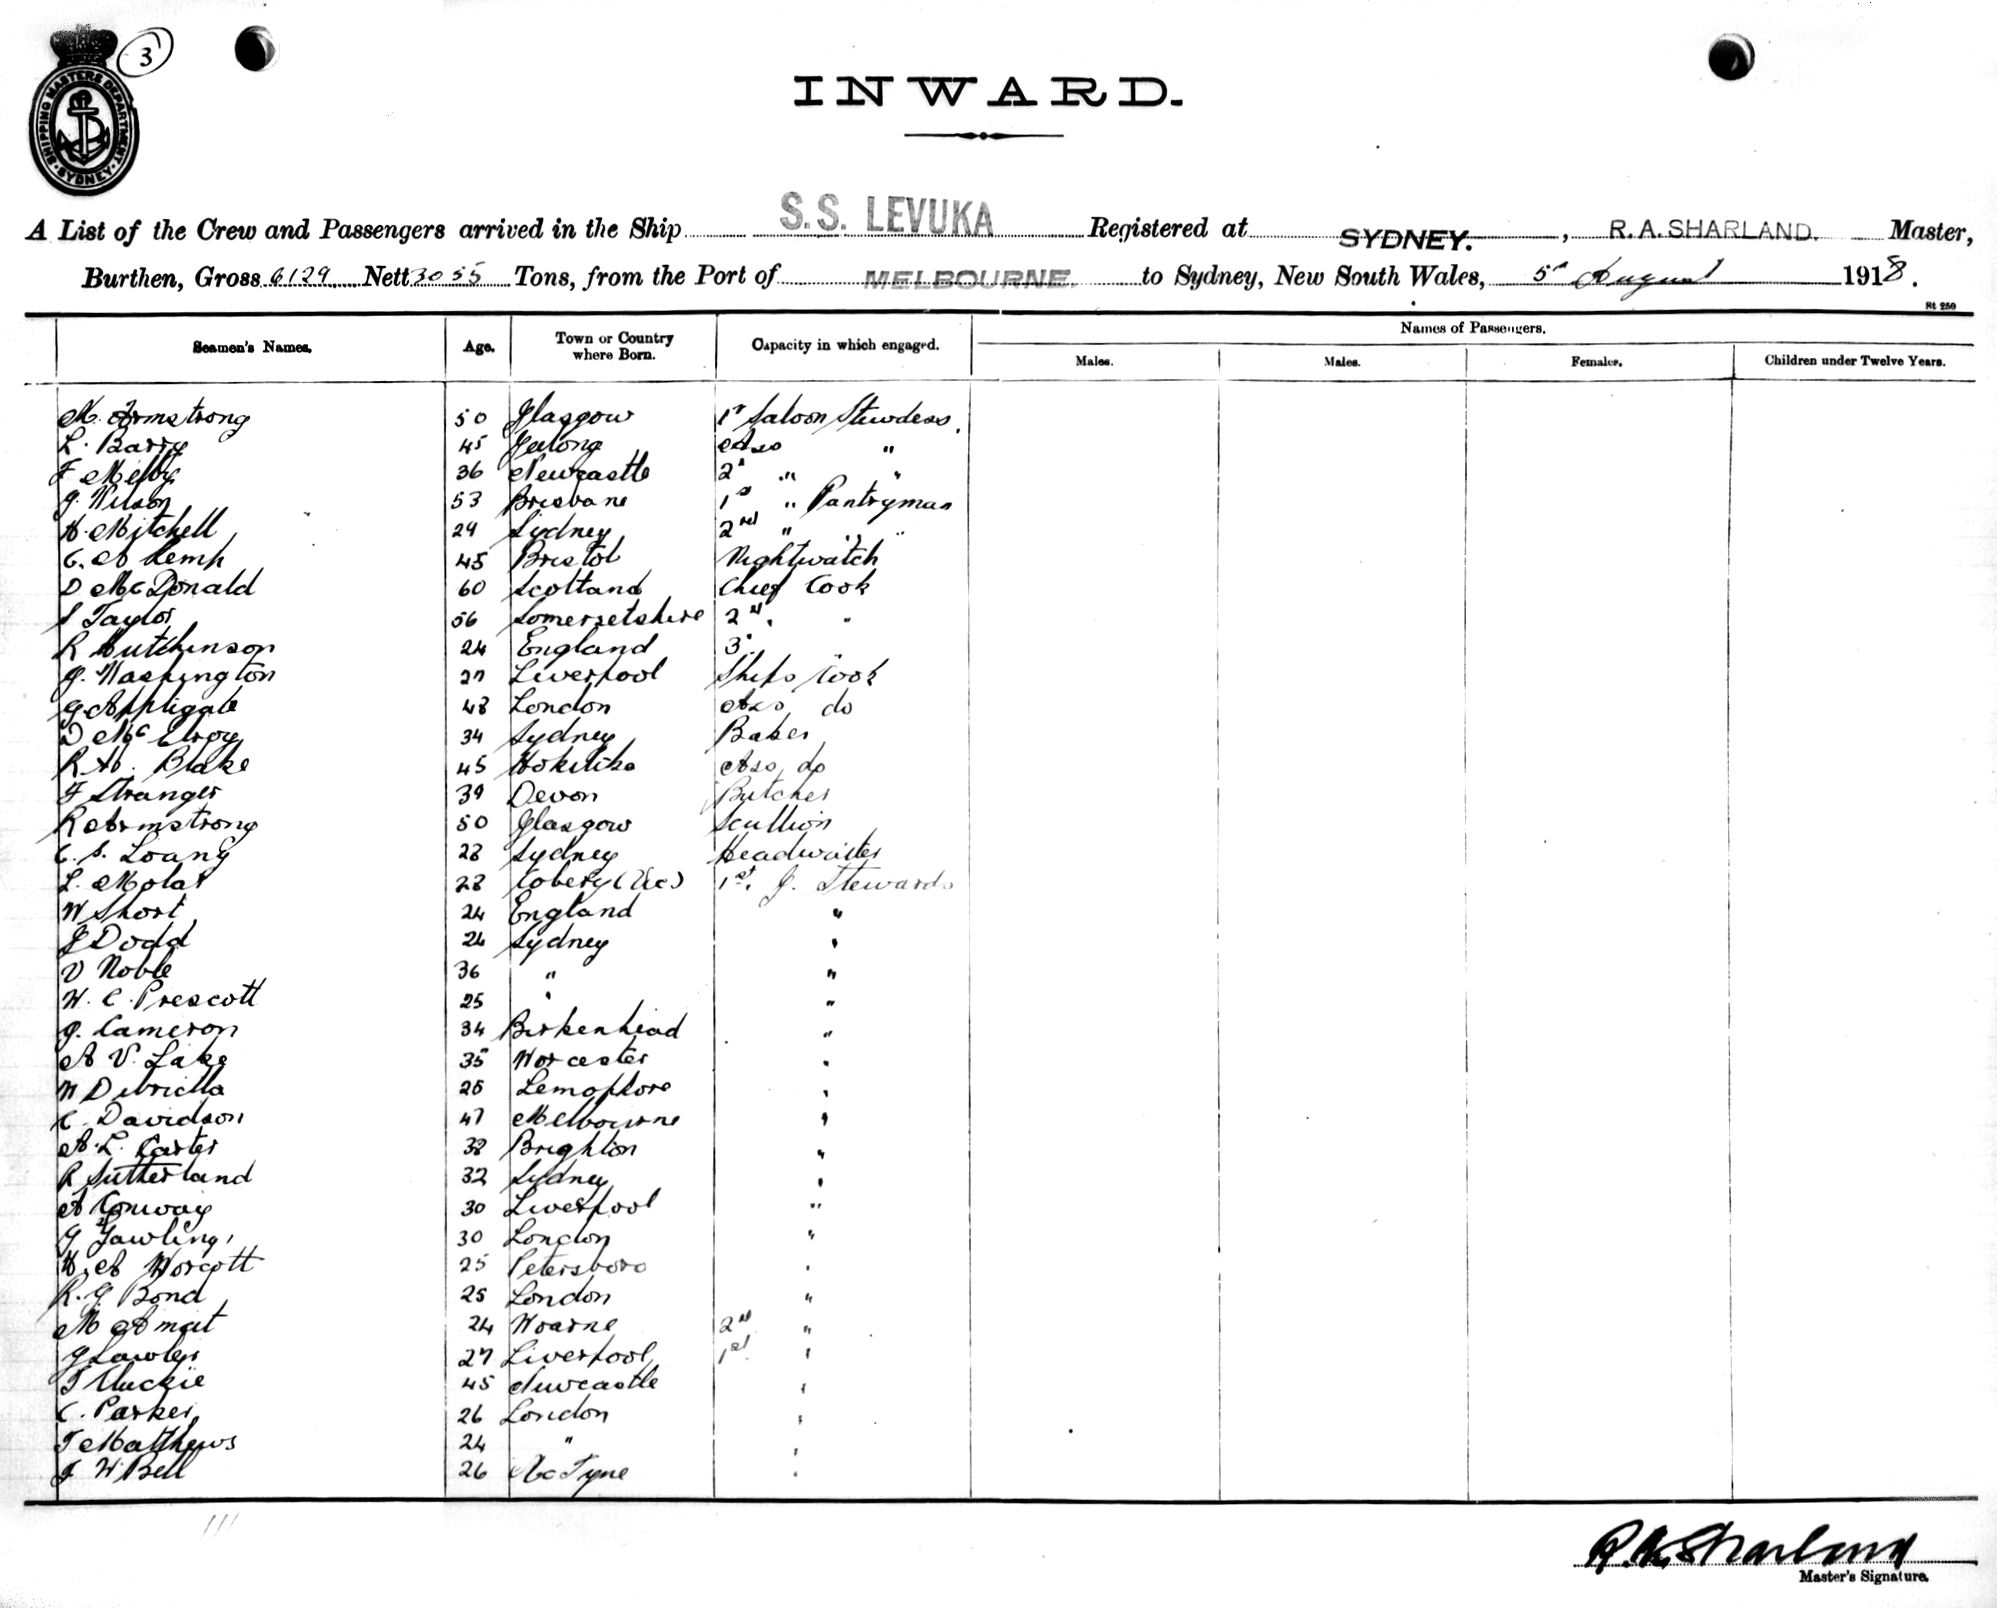 SHIPPING MASTERS DEPARTMENT
SYDNEY
3
INWARD.
A List of the Crew and Passengers arrived in the Ship S.S. LEVUKA Registered at SYDNEY. , R. A. SHARLAND. Master,
Burthen, Gross 6129 Nett 3055 Tons, from the Port of MELBOURNE. to Sydney, New South Wales, 5th August 1918.
St 250
Seamen's Names. Age. Town or Country where Born. Capacity in which engaged. Names of Passengers.
Males. Males. Females. Children under Twelve Years.
M. Armstrong 50 Glasgow 1st Saloon Stewdess.
L. Barry 45 Geelong Ass "
F Melby 36 Newcastle 2nd " "
G. Wilson 53 Brisbane 1st " Pantryman
H. Mitchell 29 Sydney 2nd " "
C. A Kemp 45 Bristol Nightwatch
D McDonald 60 Scotland Chief Cook
S Taylor 56 Somersetshire 2nd "
R Hutchinson 24 England 3rd "
G. Washington 27 Liverpool Ships Cook
G Appligate 48 London Ass do
D McElroy 34 Sydney Baker
R. H. Blake 45 Hokitika Ass do
F Stranger 39 Devon Butcher
R Armstrong 50 Glasgow Scullion
C. S. Loany 28 Sydney Headwaiter
L. Molar 28 (Vic) 1st. G. Stewards
W Short 24 England "
J Dodd 24 Sydney "
V Noble 36 " "
W. C. Prescott 25 " "
G. Cameron 34 Birkenhead "
A V. Lake 35 Worcester "
W 25 "
C. Davidson 47 Melbourne "
A. L. Carter 38 Brighton "
R Sutherland 32 Sydney "
A Conway 30 Liverpool "
G Gowling 30 London "
H. A Worcott 25 Petersboro "
R. G Bond 25 London "
M 24 2nd "
G Lawler 27 Liverpool 1st "
T Mackie 45 Newcastle "
C. Parker 26 London "
T Matthews 24 " "
F W. Bell 26 Tyne "
R. A. Sharland
Master's Signature.